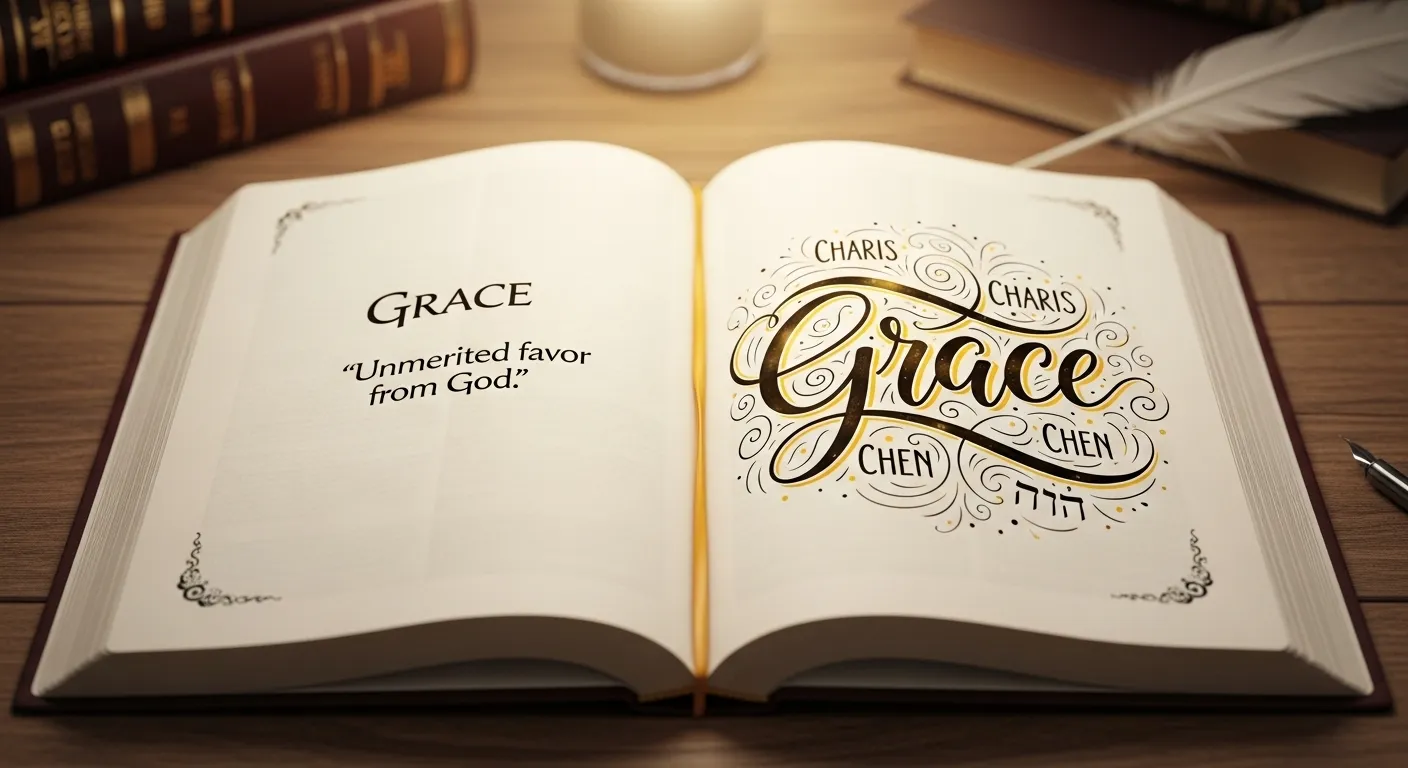 GRACE
“Unmerited favor
from God.”
CHARIS
CHARIS
Grace
CHEN
CHEN